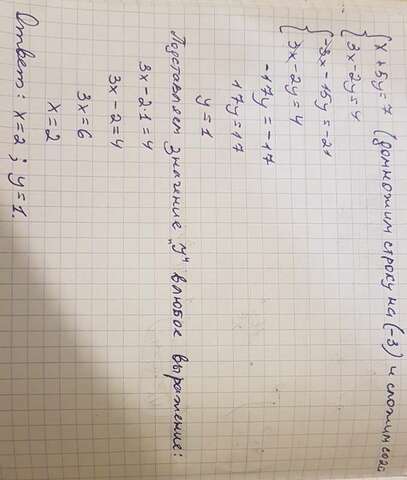 { x + 5y = 7 (домножим строку на (-3) и сложим
{ 3x - 2y = 4
{ -3x - 15y = -21
{ 3x - 2y = 4
-17y = -17
17y = 17
y = 1
Подставляем значение „y" в любое выражение:
3x - 2·1 = 4
3x - 2 = 4
3x = 6
x = 2
Ответ: x = 2 ; y = 1.